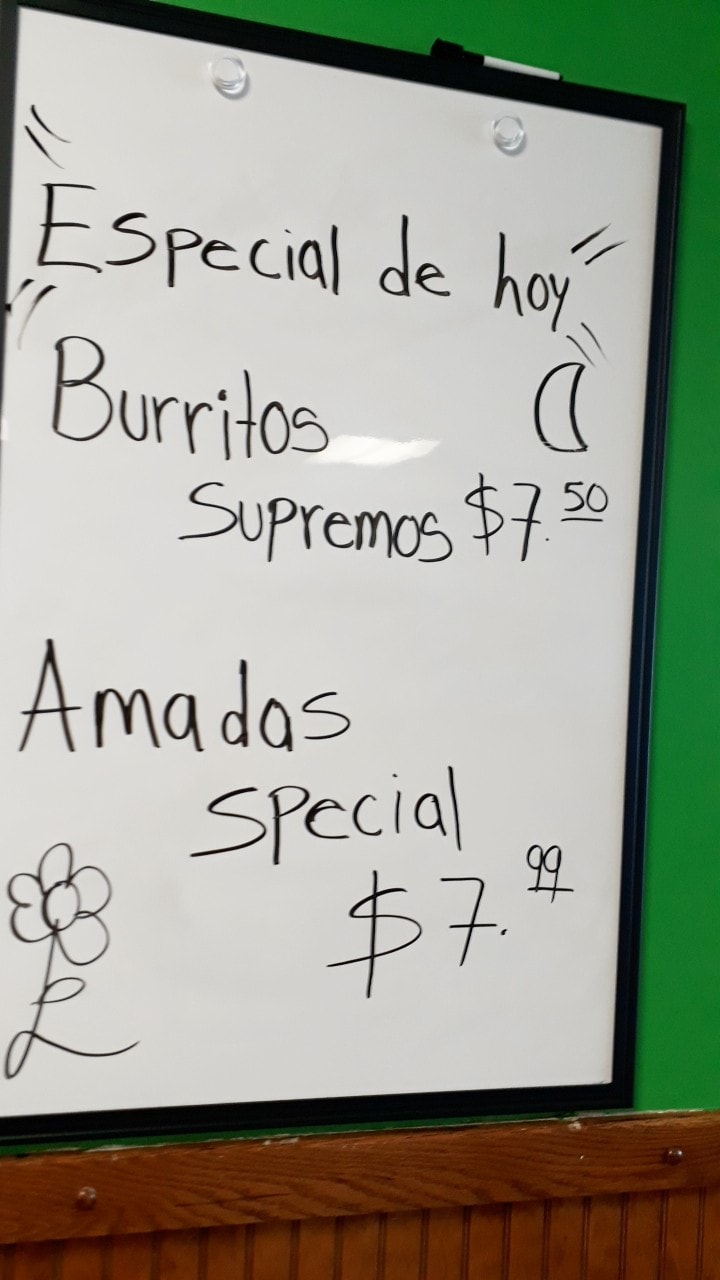 Especial de hoy
Burritos
Supremos $7.50
Amadas
special
$7.99